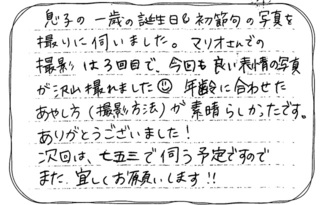 息子の一歳の誕生日&初節句の写真を
撮りに伺いました。マリオさんでの
撮影は3回目で、今回も良い表情の写真
が沢山撮れました☺ 年齢に合わせた
あやし方(撮影方法)が素晴らしかったです。
ありがとうございました!
次回は、七五三で伺う予定ですので
また宜しくお願いします!!